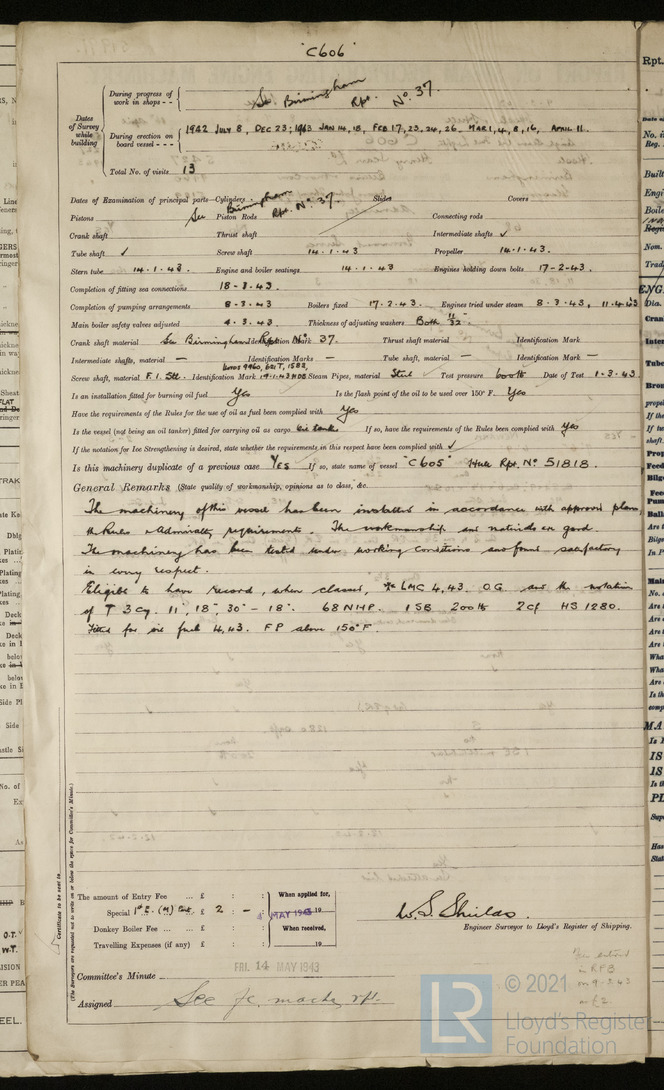 "C606"
During progress of work in shops - - See Birmingham Rpt. No. 37.
Dates of Survey while building
During erection on board vessel - - - 1942 JULY 8, DEC 23; 1943 JAN 14, 18, FEB 17, 23, 24, 26. MAR 1, 4, 8, 16, APRIL 11.
Total No. of visits 13
Dates of Examination of principal parts—Cylinders See Birmingham Rpt. No. 37. Slides Covers
Pistons Piston Rods Connecting rods
Crank shaft Thrust shaft Intermediate shafts ✓
Tube shaft ✓ Screw shaft 14.1.43. Propeller 14.1.43.
Stern tube 14.1.43. Engine and boiler seatings 14.1.43. Engines holding down bolts 17-2-43.
Completion of fitting sea connections 18-3-43.
Completion of pumping arrangements 8-3-43 Boilers fixed 17.2.43. Engines tried under steam 8.3.43, 11.4.43
Main boiler safety valves adjusted 4.3.43. Thickness of adjusting washers Both 11/32"
Crank shaft material See Birmingham Rpt. No. 37. Identification Mark Thrust shaft material Identification Mark
Intermediate shafts, material — Identification Marks — Tube shaft, material — Identification Mark —
Screw shaft, material F.I. Stl. Identification Mark Steam Pipes, material Steel Test pressure 600 lb Date of Test 1-3-43.
Is an installation fitted for burning oil fuel Yes Is the flash point of the oil to be used over 150° F. Yes
Have the requirements of the Rules for the use of oil as fuel been complied with Yes
Is the vessel (not being an oil tanker) fitted for carrying oil as cargo If so, have the requirements of the Rules been complied with Yes
If the notation for Ice Strengthening is desired, state whether the requirements in this respect have been complied with ✓
Is this machinery duplicate of a previous case YES If so, state name of vessel "C605" Hull Rpt. No 51818.
General Remarks (State quality of workmanship, opinions as to class, &c.
The machinery of this vessel has been installed in accordance with approved plans,
the Rules & Admiralty requirements. The workmanship and materials are good.
The machinery has been tested under working conditions and found satisfactory
in every respect.
Eligible to have record, when classed, LMC 4,43. O.G. and the notation
of T 3Cy. 11", 18", 30" – 18". 68 NHP. 1SB 200 lb 2cf HS 1280.
Fitted for oil fuel 4,43. F P above 150°F.
(The Surveyors are requested not to write on or below the space for Committee's Minute.)
Certificate to be sent to
The amount of Entry Fee ... £ : : When applied for,
Special £ 2 : – : 4 MAY 1943 19
Donkey Boiler Fee ... ... £ : : When received,
Travelling Expenses (if any) £ : : 19
W.S. Shields.
Engineer Surveyor to Lloyd's Register of Shipping.
Committee's Minute FRI. 14 MAY 1943
Assigned See J.C. machy rpt.
© 2021
LR
Lloyd's Register
Foundation